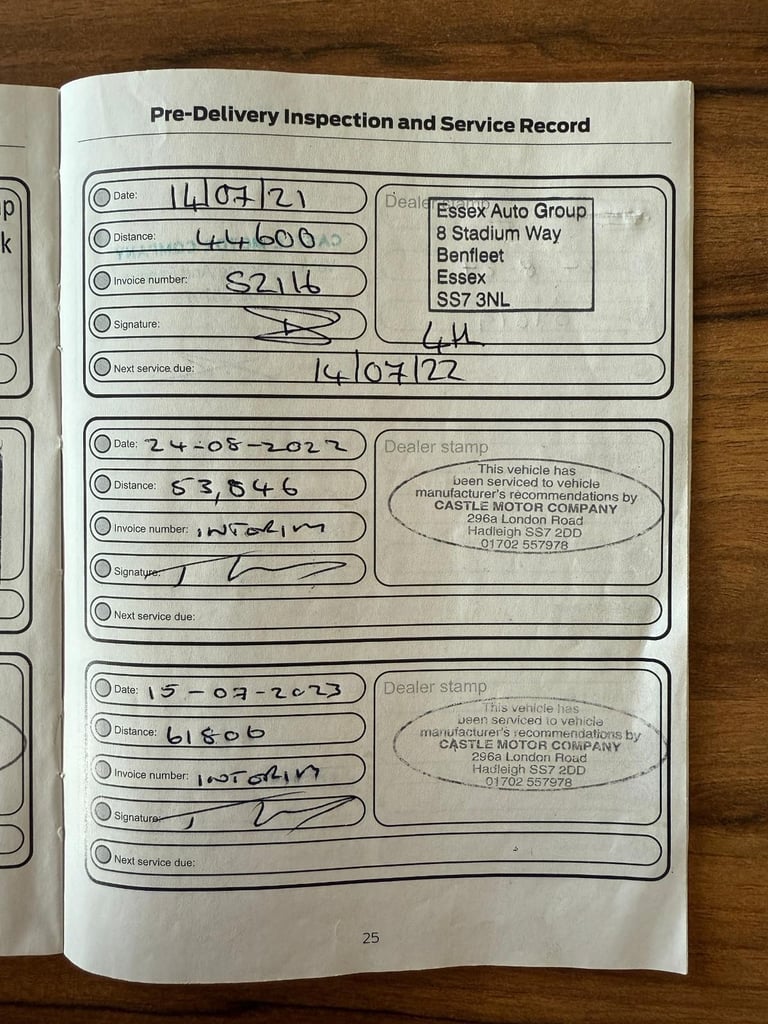 p
k
Pre-Delivery Inspection and Service Record
Date: 14/07/21
Distance: 44600
Invoice number: S2116
Signature:
Next service due: 14/07/22
Dealer stamp
Essex Auto Group
8 Stadium Way
Benfleet
Essex
SS7 3NL
Date: 24-08-2022
Distance: 53,846
Invoice number: INTORIM
Signature:
Next service due:
Dealer stamp
This vehicle has
been serviced to vehicle
manufacturer's recommendations by
CASTLE MOTOR COMPANY
296a London Road
Hadleigh SS7 2DD
01702 557978
Date: 15-07-2023
Distance: 61806
Invoice number: INTORIM
Signature:
Next service due:
Dealer stamp
This vehicle has
been serviced to vehicle
manufacturer's recommendations by
CASTLE MOTOR COMPANY
296a London Road
Hadleigh SS7 2DD
01702 557978
25